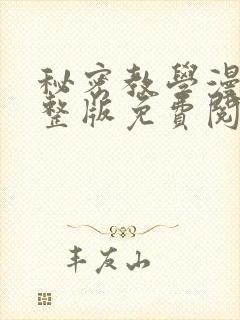 秘密教學漫
整版免費閱
丰友山